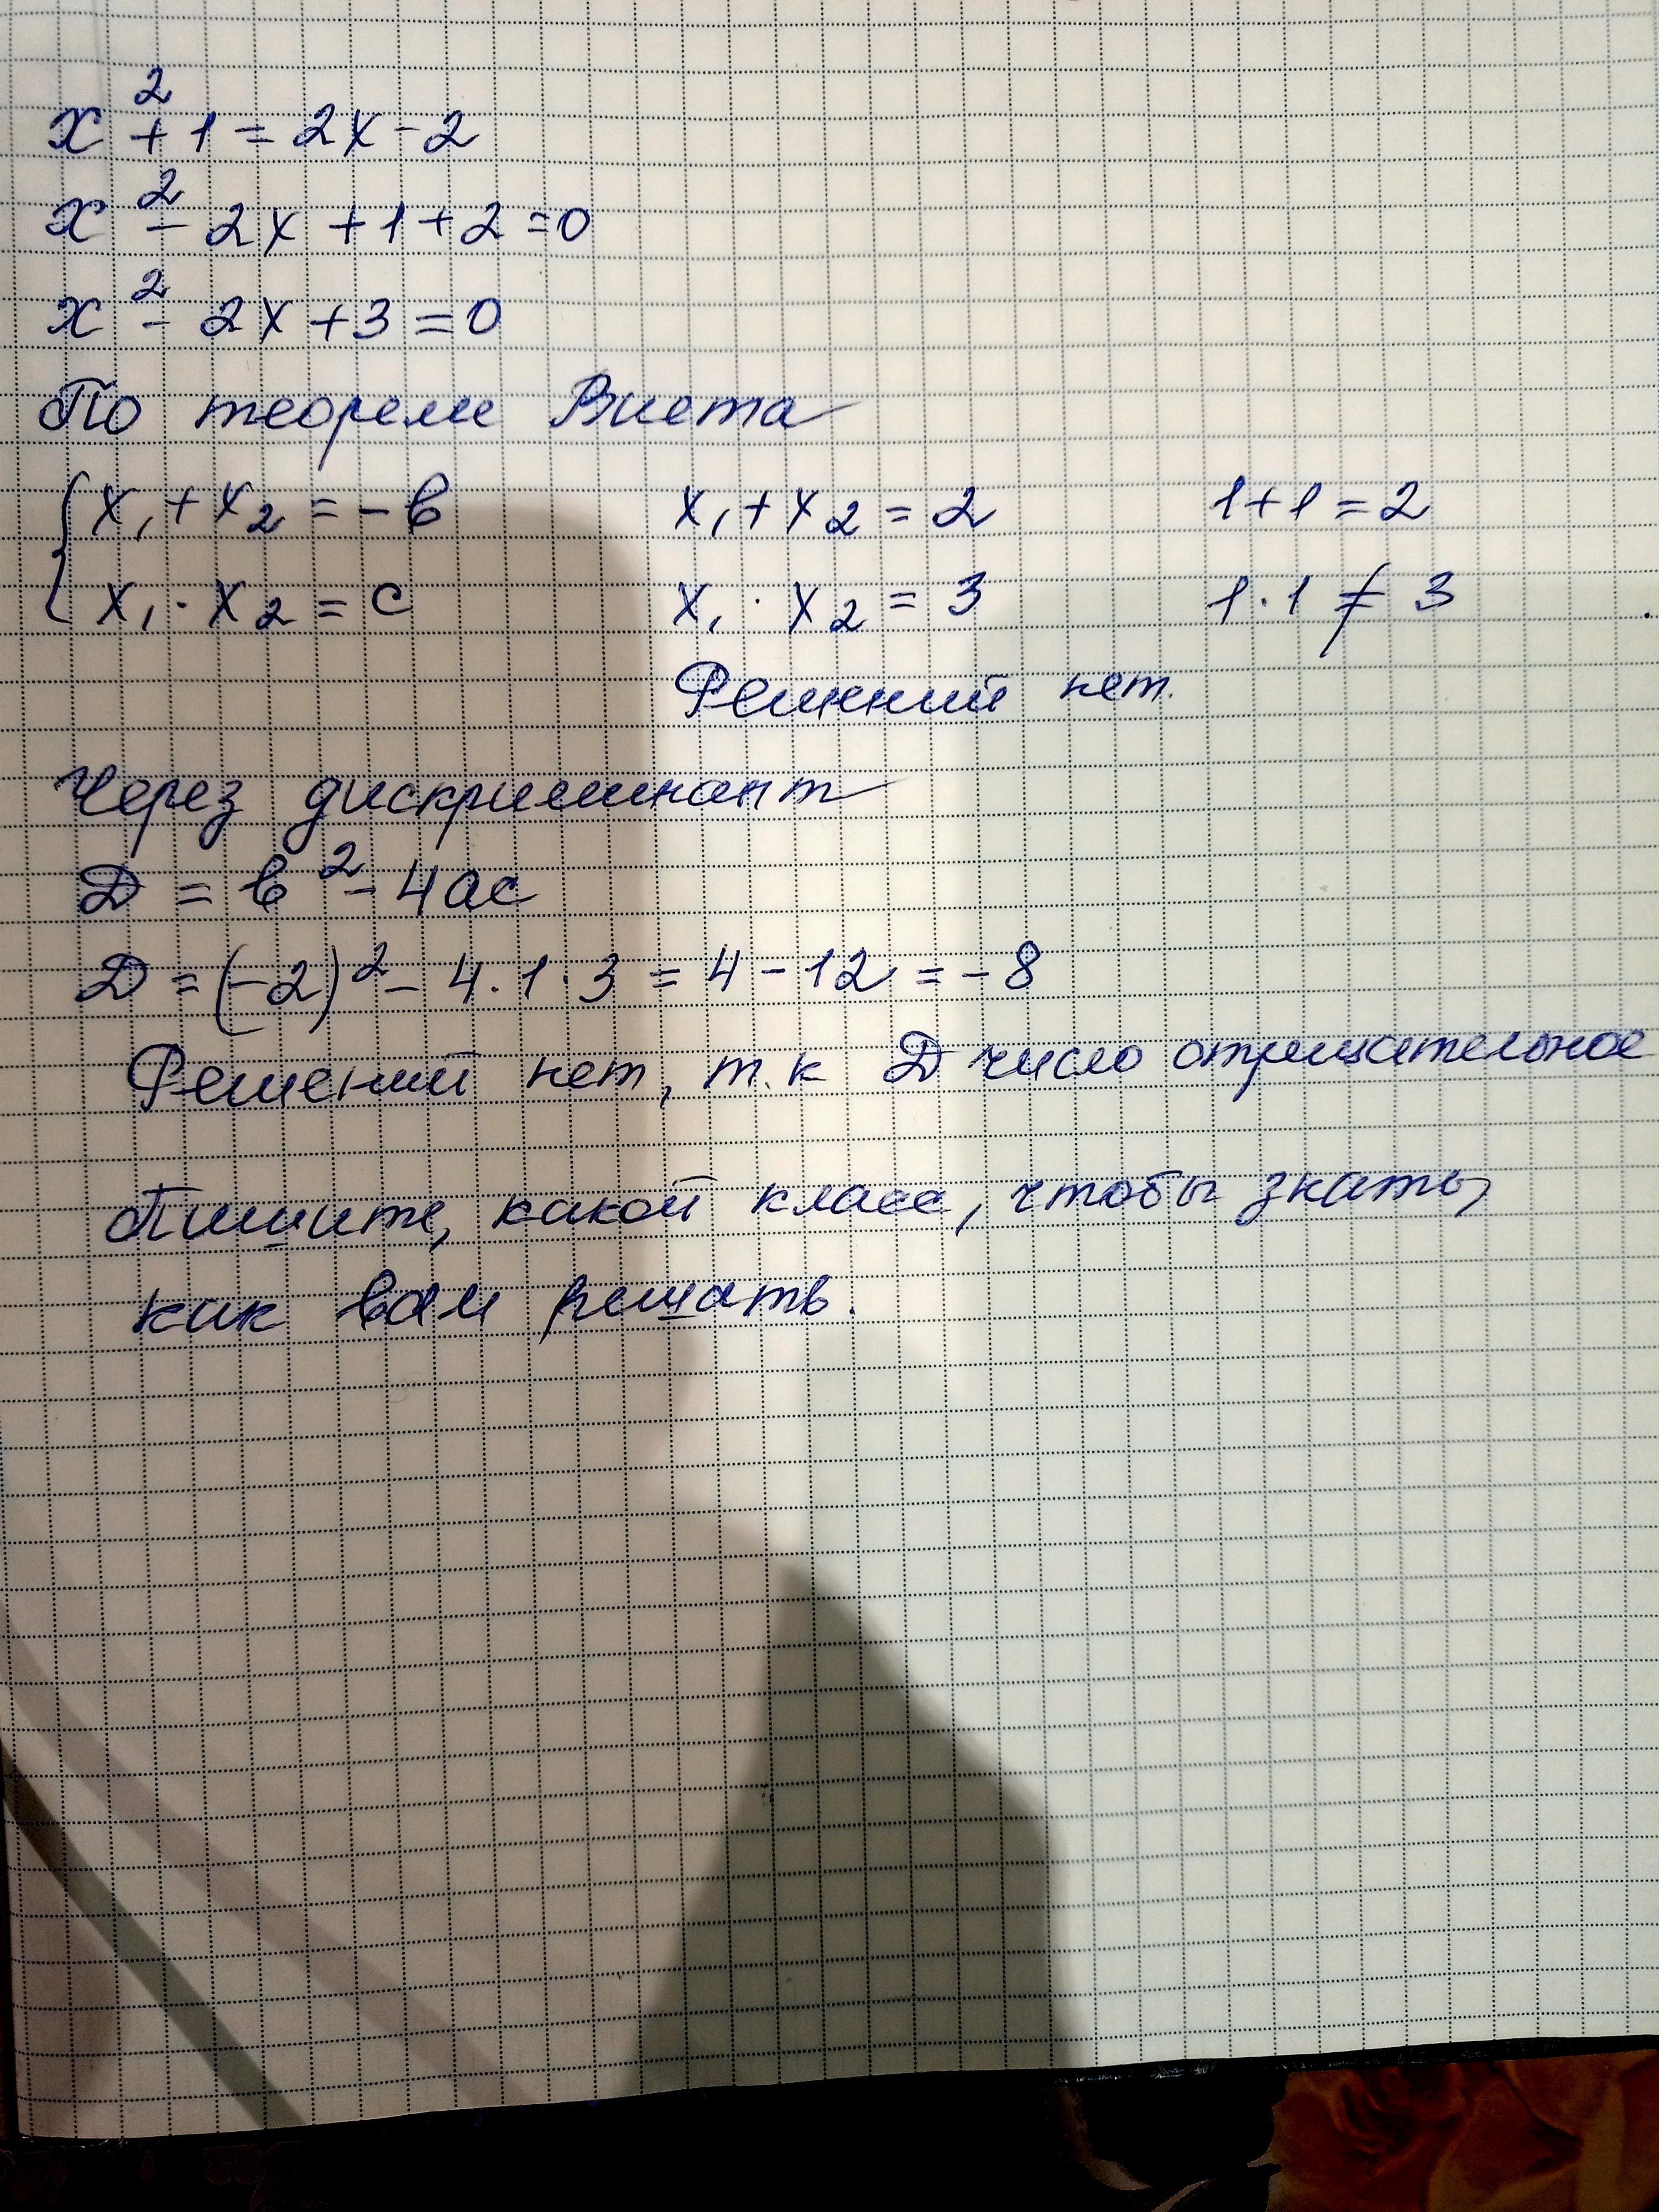 x² + 1 = 2x - 2
x² - 2x + 1 + 2 = 0
x² - 2x + 3 = 0
По теореме Виета
{ x₁ + x₂ = -b    x₁ + x₂ = 2    1 + 1 = 2
x₁ · x₂ = c    x₁ · x₂ = 3    1 · 1 ≠ 3
Решений нет.
Через дискриминант
D = b² - 4ac
D = (-2)² - 4 · 1 · 3 = 4 - 12 = -8
Решений нет, т.к D число отрицательное
Пишите, какой класс, чтобы знать,
как вам решать.